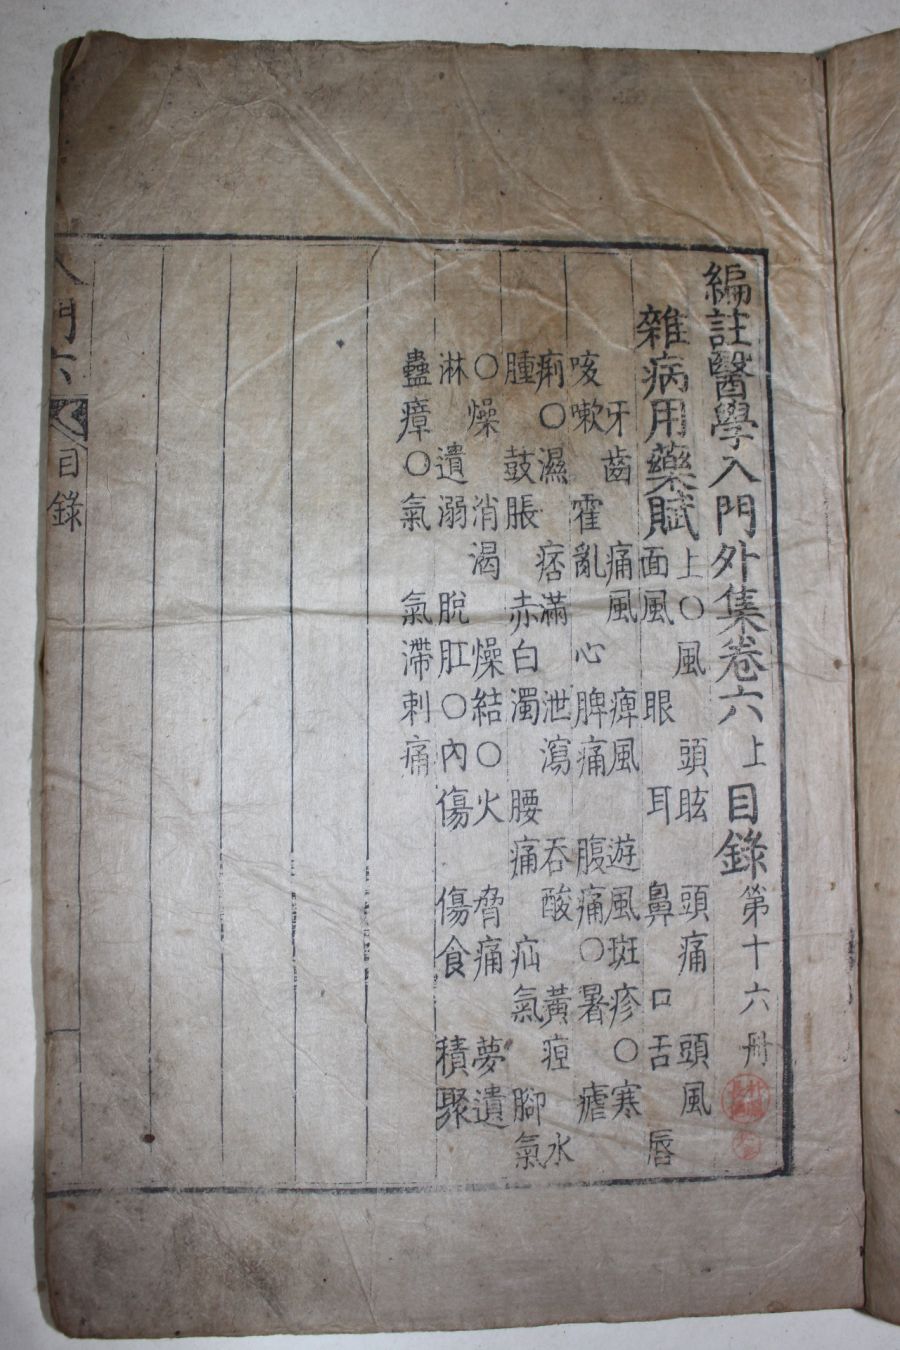 編註醫學入門外集卷六上 目錄 第十六冊
雜病用藥賦
上○風 頭眩 頭痛 頭風
面風 眼 耳 鼻 口舌 唇
牙齒 痛風 痺風 遊風斑疹○寒
咳嗽 霍亂 心脾痛 腹痛○暑 瘧
痢○濕 痞滿 泄瀉 吞酸 黃疸 水
腫 鼓脹 赤白濁 腰痛 疝氣 腳氣
○燥 消渴 燥結○火 脅痛 夢遺
淋 遺溺 脫肛○內傷 傷食 積聚
蠱瘴○氣 氣滯刺痛
入門六 目錄